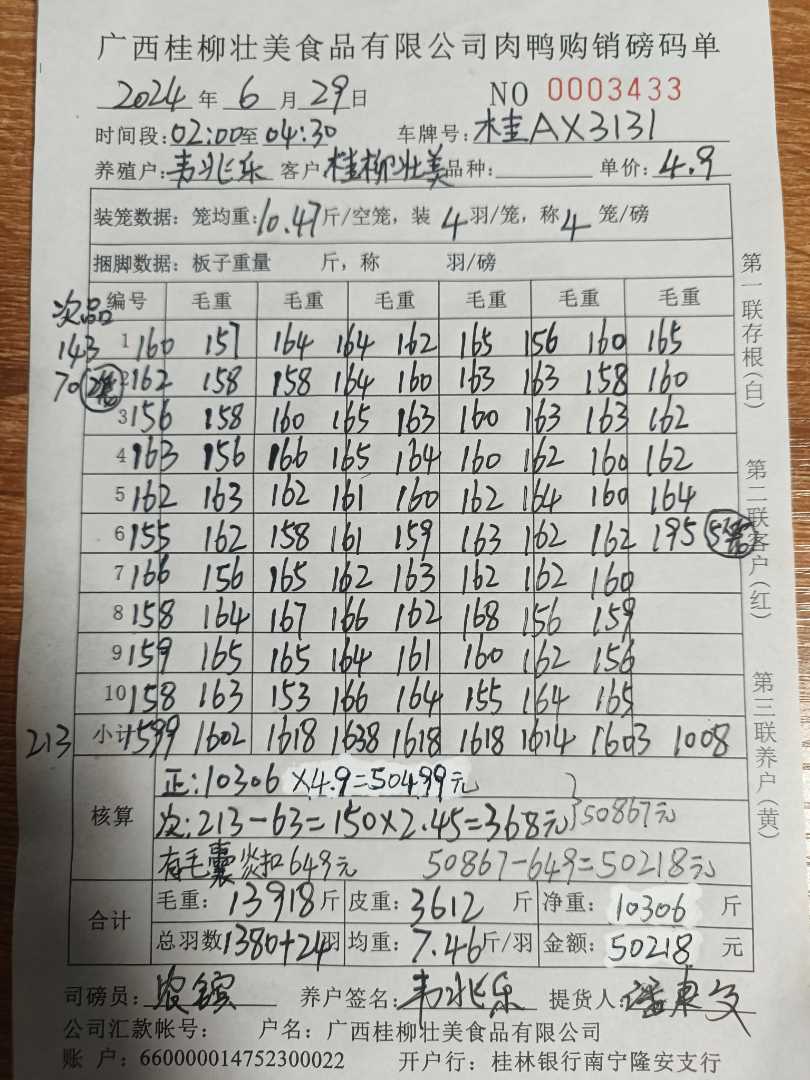 广西桂柳壮美食品有限公司肉鸭购销磅码单
2024 年 6 月 29 日 NO 0003433
时间段: 02:00 至 04:30 车牌号: 桂AX3131
养殖户: 韦兆乐 客户 桂柳壮美 品种: 单价: 4.9
装笼数据: 笼均重: 10.47 斤/空笼, 装 4 羽/笼, 称 4 笼/磅
捆脚数据: 板子重量 斤, 称 羽/磅
次品 编号 毛重 毛重 毛重 毛重 毛重 毛重
143 1 160 157 164 164 162 165 156 160 165
70 2笼 2 162 158 158 164 160 163 163 158 160
3 156 158 160 165 163 160 163 163 162
4 163 156 166 165 164 160 162 160 162
5 162 163 162 161 160 162 164 160 164
6 155 162 158 161 159 163 162 162 195 5笼
7 166 156 165 162 163 162 162 160
8 158 164 167 166 162 168 156 159
9 159 165 165 164 161 160 162 156
10 158 163 153 166 164 155 164 165
213 小计 1599 1602 1618 1638 1618 1618 1614 1603 1008
核算 正: 10306 ×4.9=50499元
次: 213-63=150×2.45=368元 } 50867元
有毛囊炎扣649元 50867-649=50218元
合计 毛重: 13918 斤 皮重: 3612 斤 净重: 10306 斤
总羽数 1380+24 羽 均重: 7.46 斤/羽 金额: 50218 元
司磅员: 养户签名: 韦兆乐 提货人:
公司汇款帐号: 户名: 广西桂柳壮美食品有限公司
账 户: 660000014752300022 开户行: 桂林银行南宁隆安支行
第一联存根(白)
第二联客户(红)
第三联养户(黄)